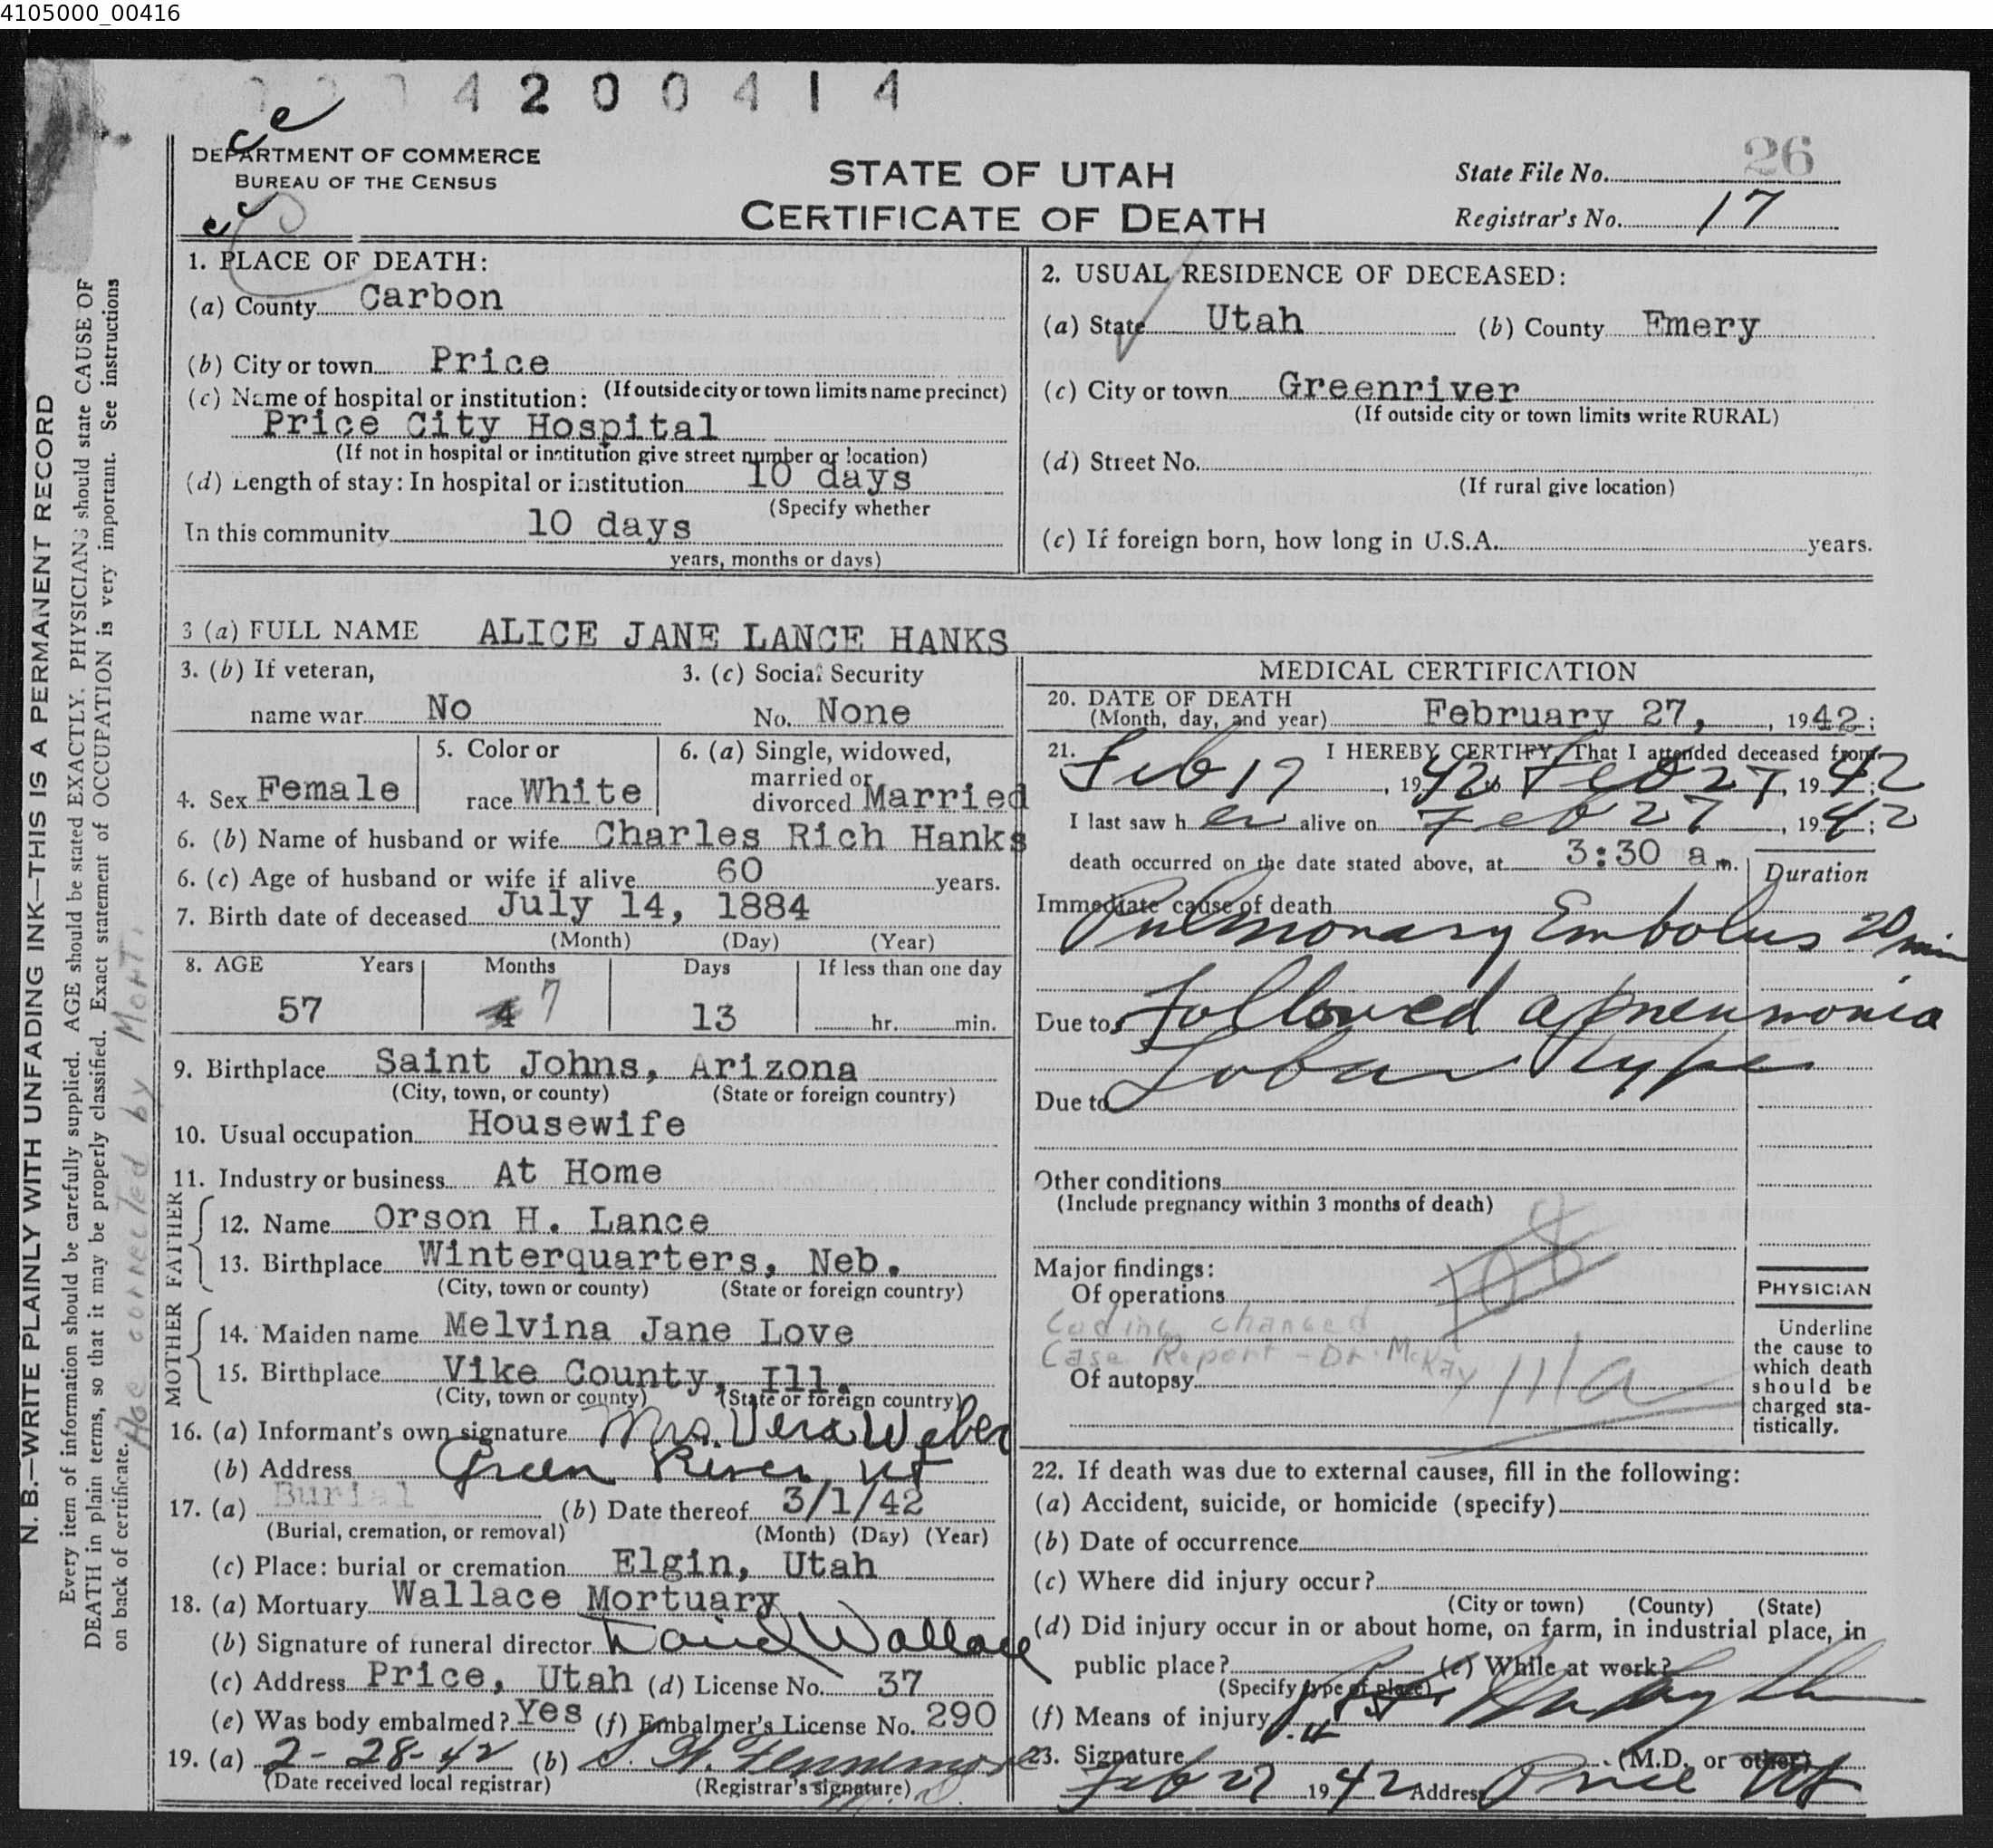 4105000_00416
4200414
ce
DEPARTMENT OF COMMERCE
BUREAU OF THE CENSUS
STATE OF UTAH
CERTIFICATE OF DEATH
State File No. 26
Registrar's No. 17
N. B.—WRITE PLAINLY WITH UNFADING INK—THIS IS A PERMANENT RECORD
Every item of information should be carefully supplied. AGE should be stated EXACTLY. PHYSICIANS should state CAUSE OF
DEATH in plain terms, so that it may be properly classified. Exact statement of OCCUPATION is very important. See instructions
on back of certificate.
Age corrected by Mort.
1. PLACE OF DEATH:
(a) County Carbon
(b) City or town Price
(If outside city or town limits name precinct)
(c) Name of hospital or institution:
Price City Hospital
(If not in hospital or institution give street number or location)
(d) Length of stay: In hospital or institution 10 days
(Specify whether
In this community 10 days
years, months or days)
2. USUAL RESIDENCE OF DECEASED:
(a) State Utah (b) County Emery
(c) City or town Greenriver
(If outside city or town limits write RURAL)
(d) Street No.
(If rural give location)
(e) If foreign born, how long in U.S.A. years.
3 (a) FULL NAME ALICE JANE LANCE HANKS
3. (b) If veteran,
name war No
3. (c) Social Security
No. None
4. Sex Female
5. Color or
race White
6. (a) Single, widowed,
married or
divorced Married
6. (b) Name of husband or wife Charles Rich Hanks
6. (c) Age of husband or wife if alive 60 years.
7. Birth date of deceased July 14, 1884
(Month) (Day) (Year)
8. AGE Years Months Days If less than one day
57 4 7 13 hr. min.
9. Birthplace Saint Johns, Arizona
(City, town, or county) (State or foreign country)
10. Usual occupation Housewife
11. Industry or business At Home
FATHER
12. Name Orson H. Lance
13. Birthplace Winterquarters, Neb.
(City, town or county) (State or foreign country)
MOTHER
14. Maiden name Melvina Jane Love
15. Birthplace Vike County, Ill.
(City, town or county) (State or foreign country)
16. (a) Informant's own signature Mrs. Vera Weber
(b) Address Green River, Ut
17. (a) Burial (b) Date thereof 3/1/42
(Burial, cremation, or removal) (Month) (Day) (Year)
(c) Place: burial or cremation Elgin, Utah
18. (a) Mortuary Wallace Mortuary
(b) Signature of funeral director Wallace
(c) Address Price, Utah (d) License No. 37
(e) Was body embalmed? Yes (f) Embalmer's License No. 290
19. (a) 2-28-42 (b) S. W. Fennemore
(Date received local registrar) (Registrar's signature)
MEDICAL CERTIFICATION
20. DATE OF DEATH
(Month, day, and year) February 27, 1942;
21. I HEREBY CERTIFY, That I attended deceased from
Feb 17, 1942 to Feb 27, 1942;
I last saw her alive on Feb 27, 1942;
death occurred on the date stated above, at 3:30 a m.
Duration
Immediate cause of death
Pulmonary Embolus 20 min
Due to Followed a pneumonia
Lobar type
Due to
Other conditions
(Include pregnancy within 3 months of death)
108
Major findings:
Of operations
Coding changed
Case Report - Dr. McKay
111a
Of autopsy
PHYSICIAN
Underline
the cause to
which death
should be
charged sta-
tistically.
22. If death was due to external causes, fill in the following:
(a) Accident, suicide, or homicide (specify)
(b) Date of occurrence
(c) Where did injury occur?
(City or town) (County) (State)
(d) Did injury occur in or about home, on farm, in industrial place, in
public place? (e) While at work?
(Specify type of place)
(f) Means of injury
23. Signature (M.D. or other)
Feb 27 1942 Address Price Ut